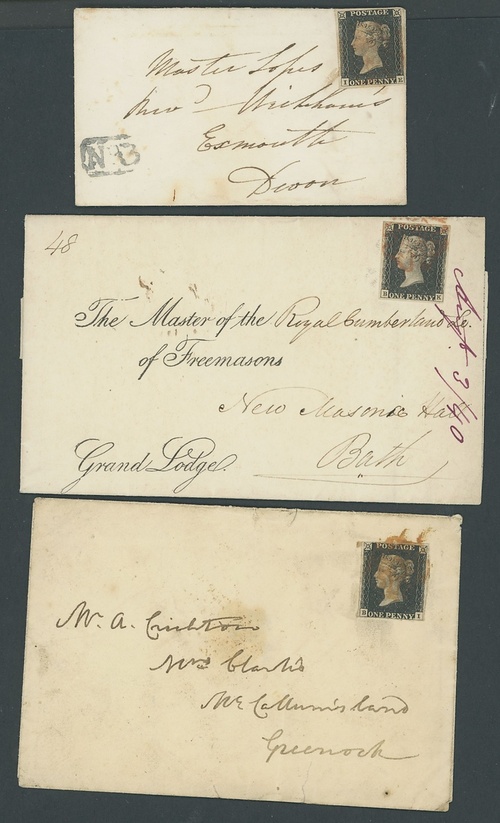 POSTAGE
ONE PENNY
I E
Master Lopes
Revd Wickham's
Exmouth
Devon
48
POSTAGE
B K
ONE PENNY
The Master of the Royal Cumberland Lo.
of Freemasons
New Masonic Hall
Bath
Grand Lodge.
3/40
POSTAGE
ONE PENNY
Mr. A. Crichton
Mrs Clark's
Mc Callum's land
Greenock